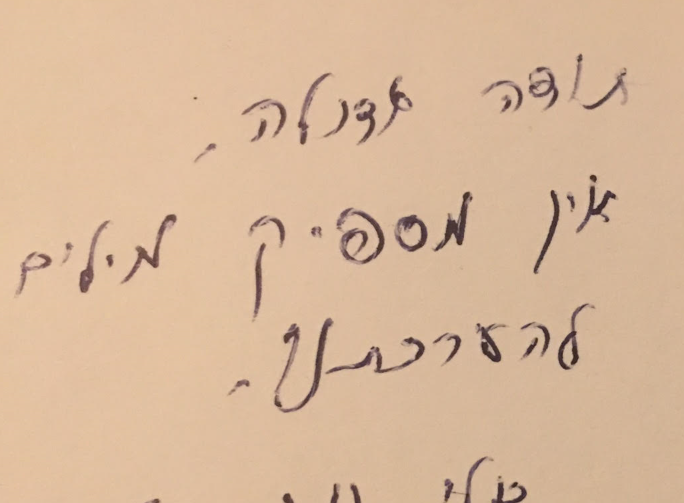 תודה גדולה.
אין מספיק מילים
להערכתנו.